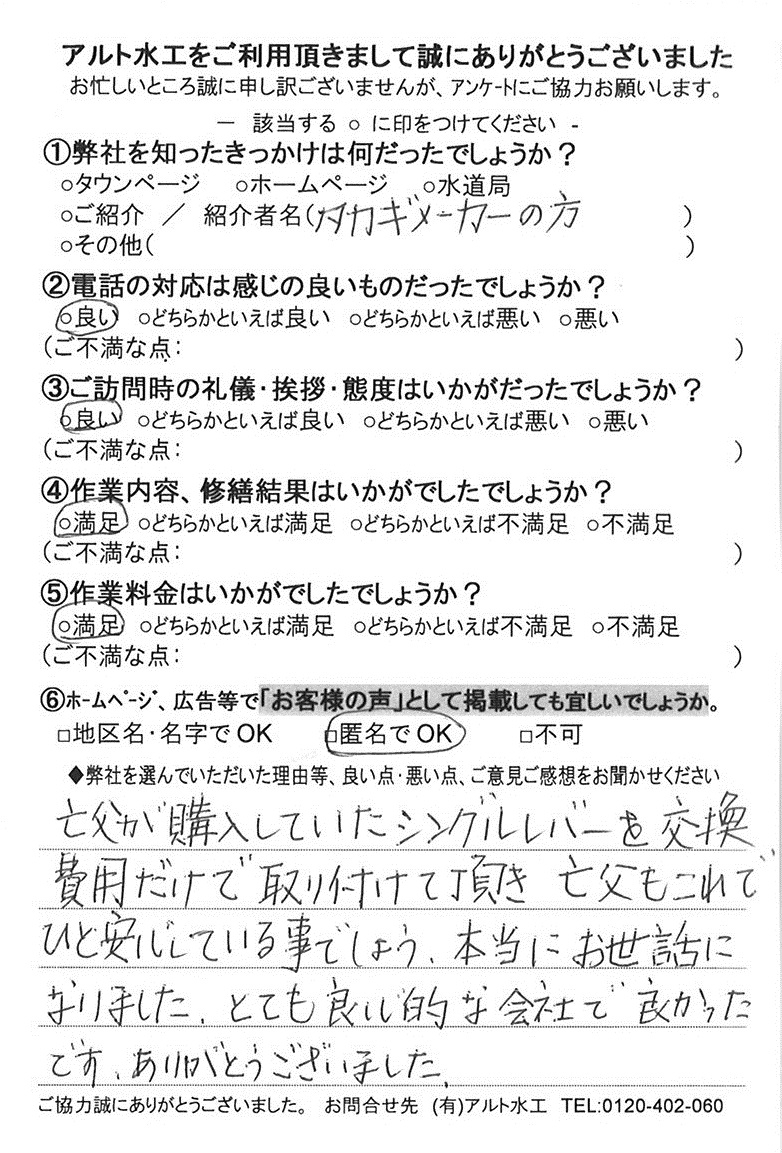 アルト水工をご利用頂きまして誠にありがとうございました
お忙しいところ誠に申し訳ございませんが、アンケートにご協力お願いします。
－ 該当する ○ に印をつけてください -
①弊社を知ったきっかけは何だったでしょうか？
○タウンページ ○ホームページ ○水道局
○ご紹介 ／ 紹介者名(タカギメーカーの方 )
○その他( )
②電話の対応は感じの良いものだったでしょうか？
○良い ○どちらかといえば良い ○どちらかといえば悪い ○悪い
(ご不満な点: )
③ご訪問時の礼儀・挨拶・態度はいかがだったでしょうか？
○良い ○どちらかといえば良い ○どちらかといえば悪い ○悪い
(ご不満な点: )
④作業内容、修繕結果はいかがでしたでしょうか？
○満足 ○どちらかといえば満足 ○どちらかといえば不満足 ○不満足
(ご不満な点: )
⑤作業料金はいかがでしたでしょうか？
○満足 ○どちらかといえば満足 ○どちらかといえば不満足 ○不満足
(ご不満な点: )
⑥ホームページ、広告等で｢お客様の声｣として掲載しても宜しいでしょうか。
□地区名・名字でOK □匿名でOK □不可
◆弊社を選んでいただいた理由等、良い点・悪い点、ご意見ご感想をお聞かせください
亡父が購入していたシングルレバーを交換
費用だけで取り付けて頂き 亡父もこれで
ひと安心している事でしょう、本当にお世話に
なりました、とても良心的な会社で良かった
です、ありがとうございました、
ご協力誠にありがとうございました。 お問合せ先 (有)アルト水工 TEL:0120-402-060